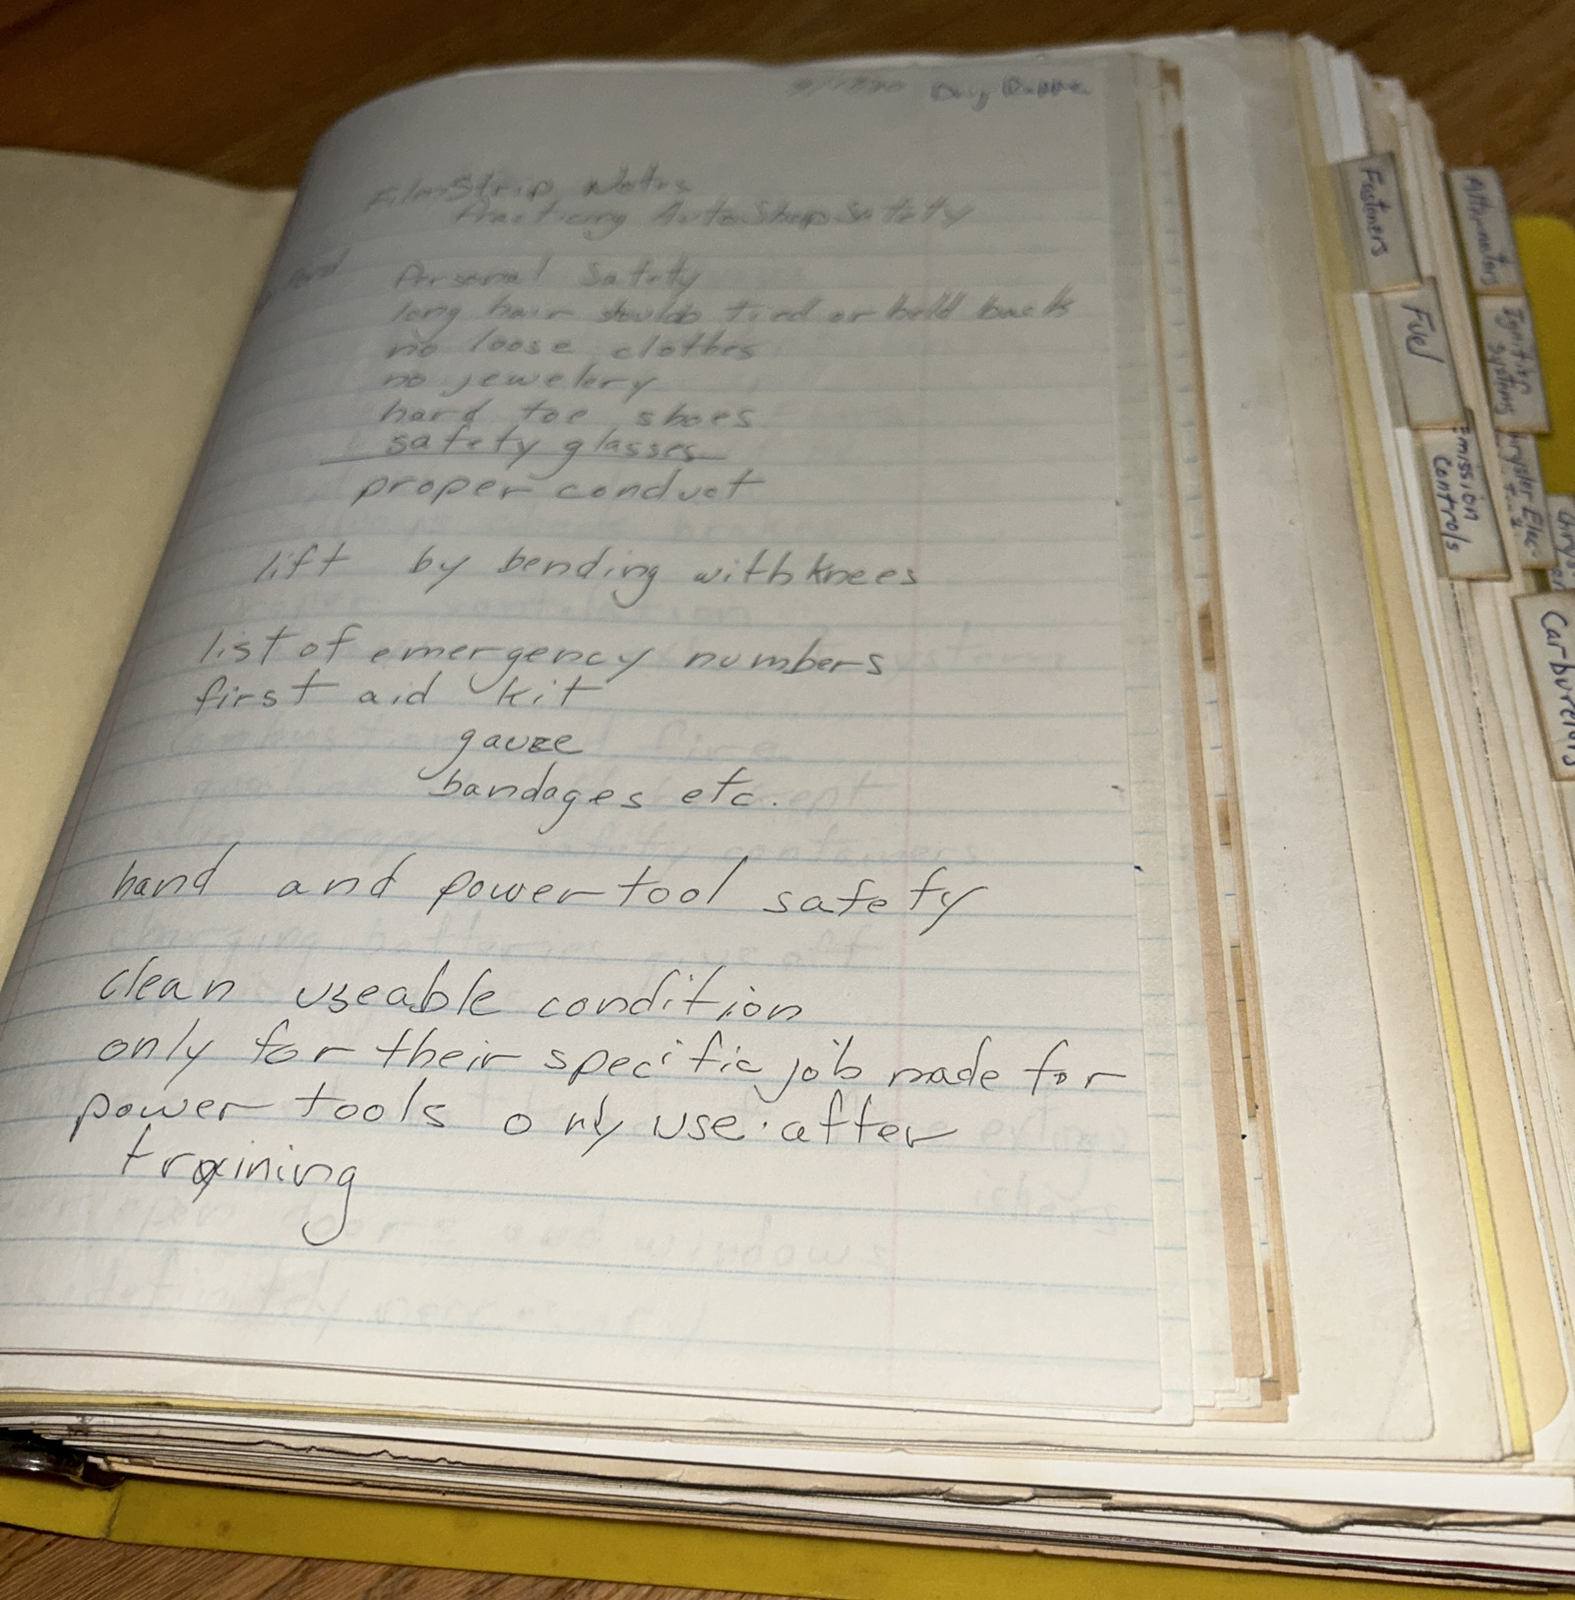 Filmstrip Notes
Practicing Auto Shop Safety
Personal Safety
long hair should tied or held back
no loose clothes
no jewelery
hard toe shoes
safety glasses
proper conduct
lift by bending with knees
list of emergency numbers
first aid kit
gauze
bandages etc.
hand and power tool safety
clean useable condition
only for their specific job made for
power tools only use after
training
Fasteners
Fuel
Emission
Controls
Alternators
Ignition
Systems
Chrysler Elec-
Carburetors